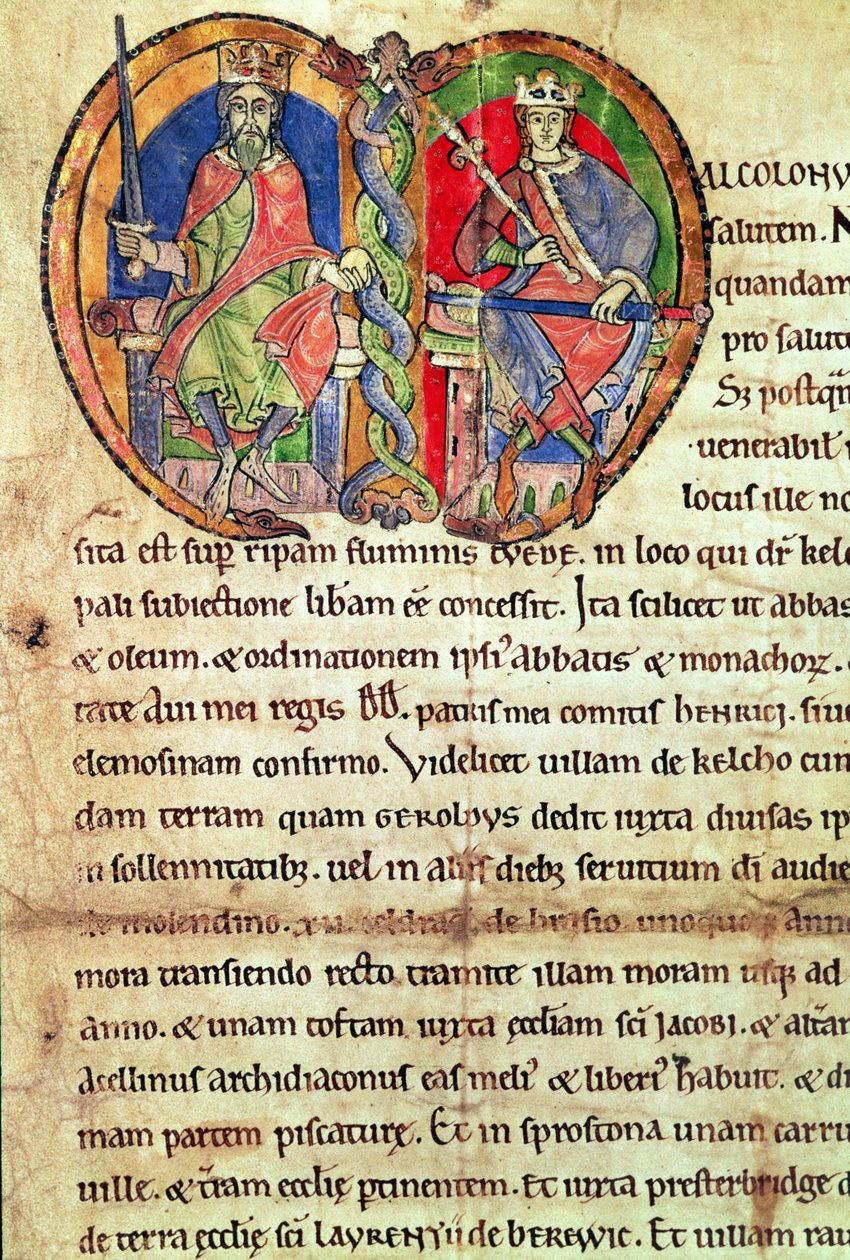 MALCOLONV
salutem. N
quandam
pro salute
Sꝫ postqͣm
uenerabił
locus ille no
sita est suꝑ ripam fluminis TVEDE. in loco qui dr̃ kelc
pali subiectione lib̃am eẽ concessit. Ita scilicet ut abbas
& oleum. & ordinationem ipsiꝰ Abbatis & monachoꝝ.
Aui mei regis DD. patris mei comitis HENRICI. siue
elemosinam confirmo. Videlicet uillam de kelcho cum
dam terram quam GEROLDVS dedit iuxta diuisas ip
in sollennitatibꝫ. uel in aliis diebꝫ seruitium dī audie
de molendino. de brasio unoquoqꝫ Anno
mora transiendo recto tramite illam moram usqꝫ ad
Anno. & unam toftam iuxta ęccłiam sc̄i IACOBI. & altan
Acellinus archidiaconus eas meliꝰ & liberiꝰ habuit. & di
mam partem piscaturę. Et in sprostona unam carru
uille. & t̃ram ecclię ꝑtinentem. Et iuxta presterbridge d
de terra ęcclię sc̄i LAVRENTII de BEREWIC. Et uillam rau